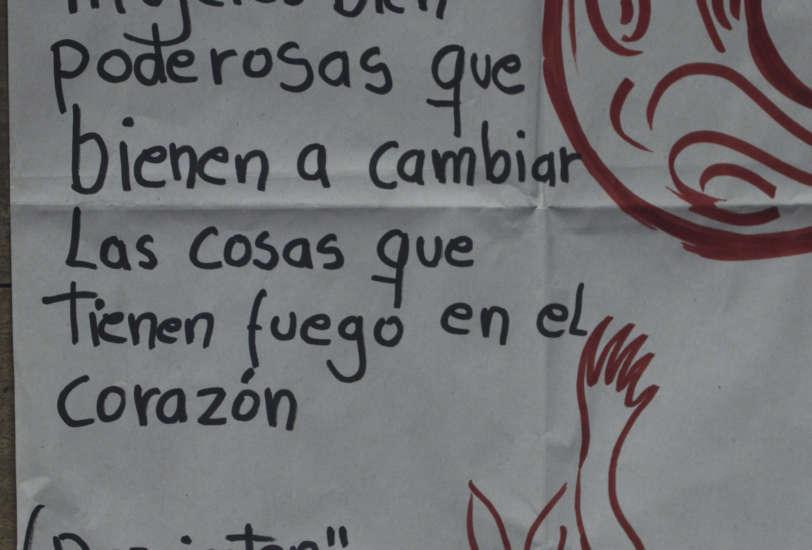 poderosas que
bienen a cambiar
Las cosas que
tienen fuego en el
corazón